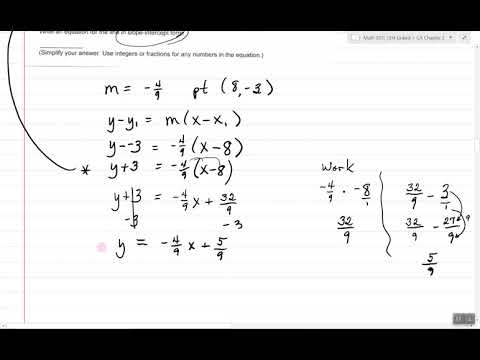 Write an equation for the line in slope-intercept form.
(Simplify your answer. Use integers or fractions for any numbers in the equation.)
m = -4/9 pt (8,-3)
y-y₁ = m(x-x₁)
y--3 = -4/9(x-8)
* y+3 = -4/9(x-8)
y+3 = -4/9x+32/9
-3 -3
y = -4/9x+5/9
work
-4/9 · -8/1
32/9
32/9 - 3/1
32/9 - 27/9
5/9